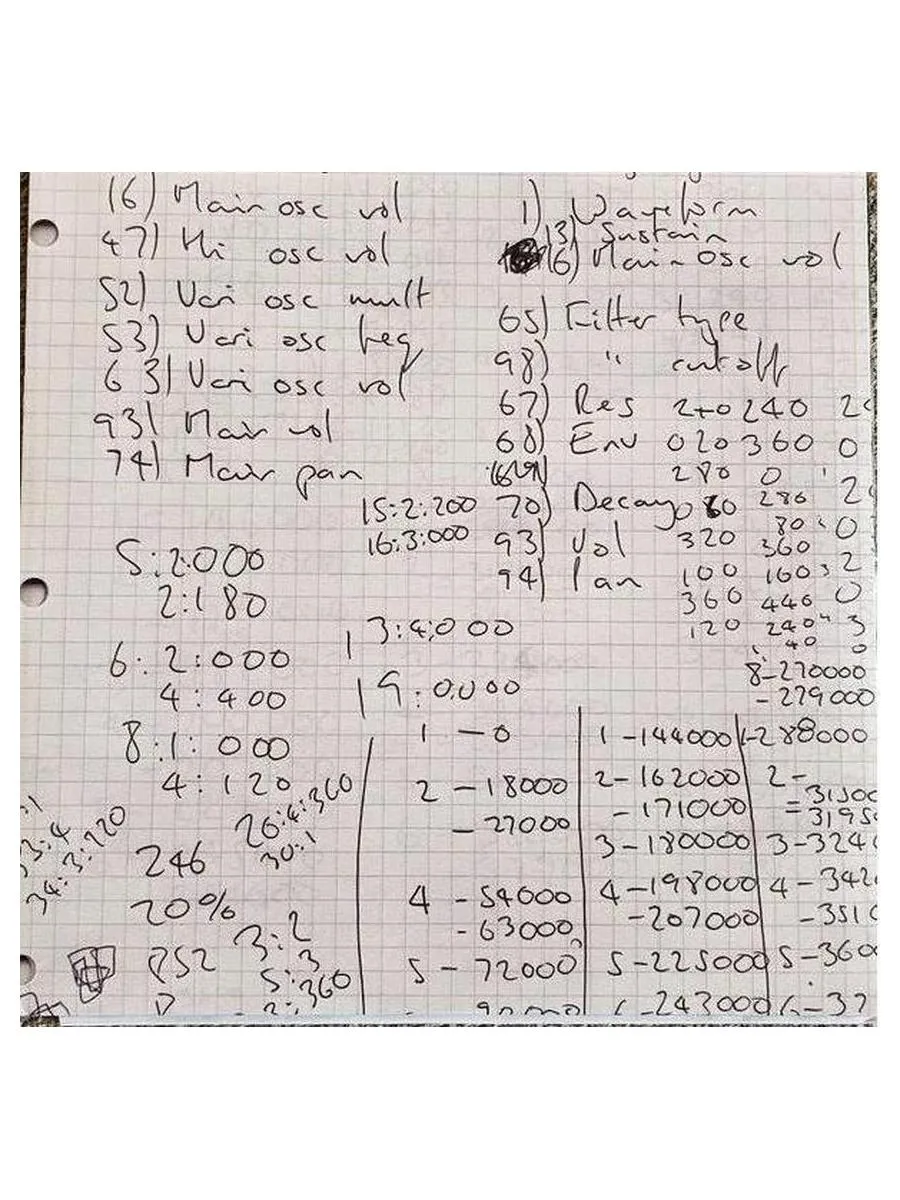 16) Main osc vol
47) Hi osc vol
52) Vari osc mult
53) Vari osc freq
63) Vari osc vol
93) Main vol
74) Main pan
1) Waveform
13) Sustain
16) Main osc vol
65) Filter type
98) " cutoff
67) Res 240 240
68) Env 020 360 0
280 0
70) Decay 280
80
93) Vol 320 360
94) Pan 100 160
360 440
120 240
40
8-270000
-279000
15:2:200
16:3:000
5:2:000
2:180
13:4:000
6:2:000
4:400
19:0:000
8:1:000
4:120
26:4:360
30:1
3:4
34:3:220
246
20%
PS2
3:2
5:3
2:360
1 - 0
2 - 18000
- 27000
4 - 54000
- 63000
5 - 72000
1 - 144000
2 - 162000
- 171000
3 - 180000
4 - 198000
- 207000
5 - 225000
6 - 243000
1 - 288000
2 -
3 - 324
4 - 342
- 351
5 - 360
6 - 37